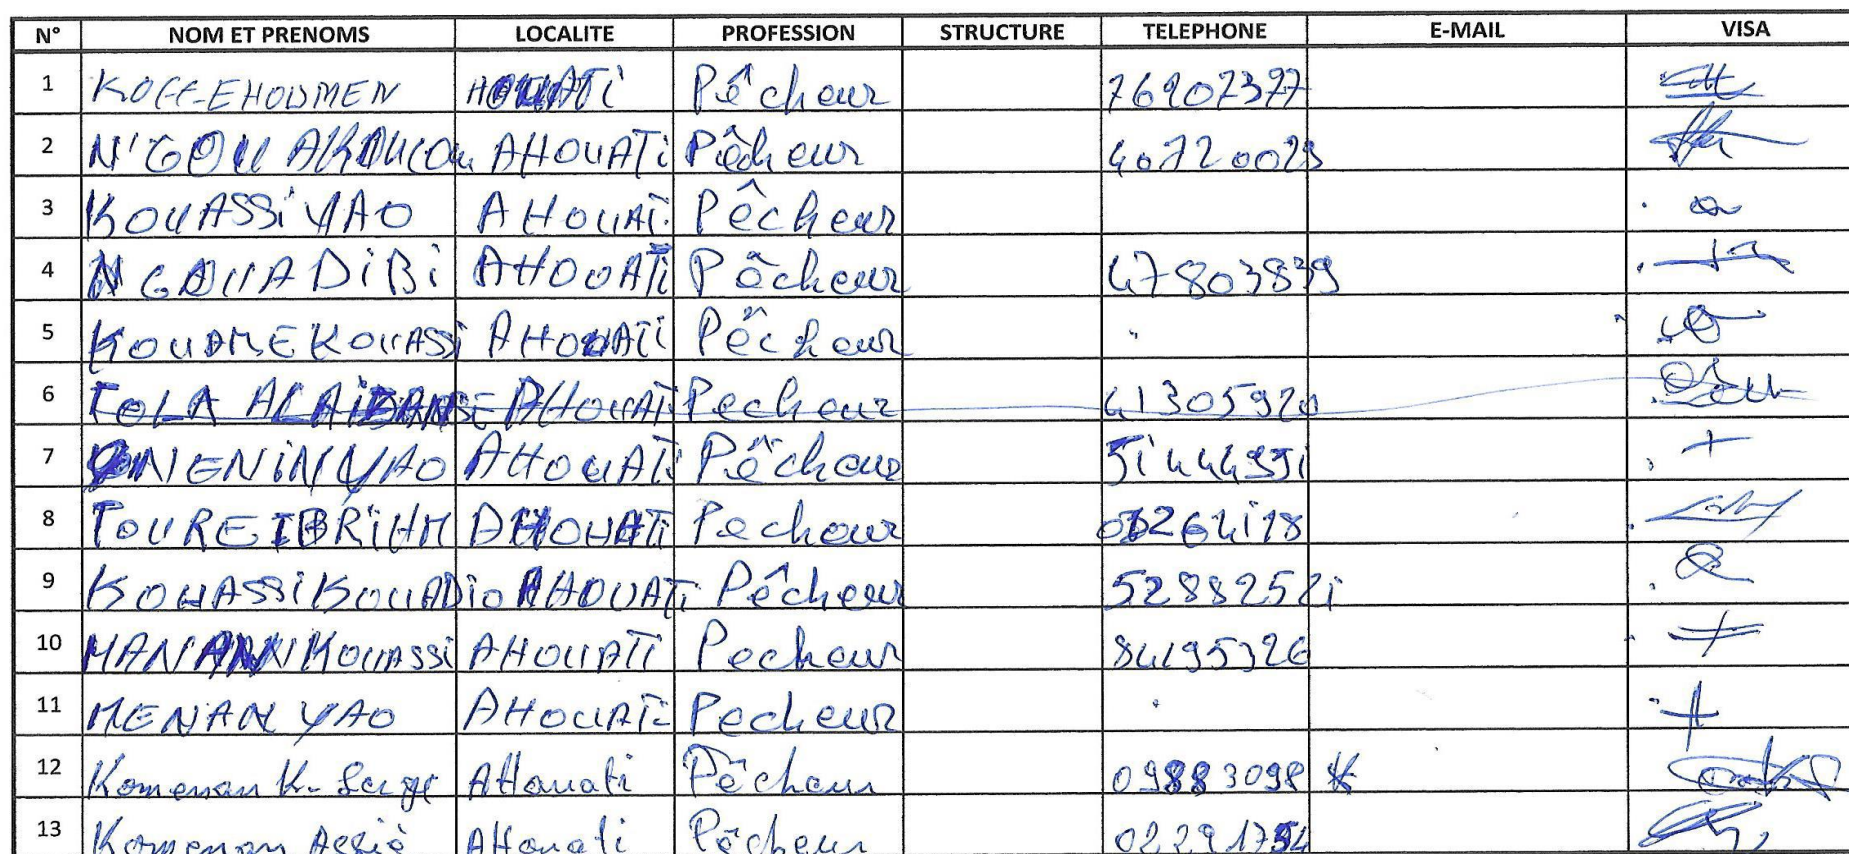 N° NOM ET PRENOMS LOCALITE PROFESSION STRUCTURE TELEPHONE E-MAIL VISA
1 KOFFEHOUMEN AHOUATi Pêcheur 76207377
2 N'GOU AHOUATi Pêcheur 40720029
3 KOUASSi YAO AHOUATi Pêcheur
4 NGOUA DiBi AHOUATi Pêcheur 47803839
5 KOUAME KOUASSi AHOUATi Pêcheur
6 TOLA AHOUATi Pecheur 41305920
7 YAO AHOUATi Pêcheur
8 TOURE IBRiHM AHOUATi Pecheur
9 KOUASSi KOUADio AHOUATi Pêcheur 5288252i
10 KOUASSi AHOUATi Pecheur 84195326
11 MENAN YAO AHOUATi Pecheur
12 Komenan K. Serge AHouati Pêcheur 09883098
13 Komenan AHouati Pêcheur 02291754